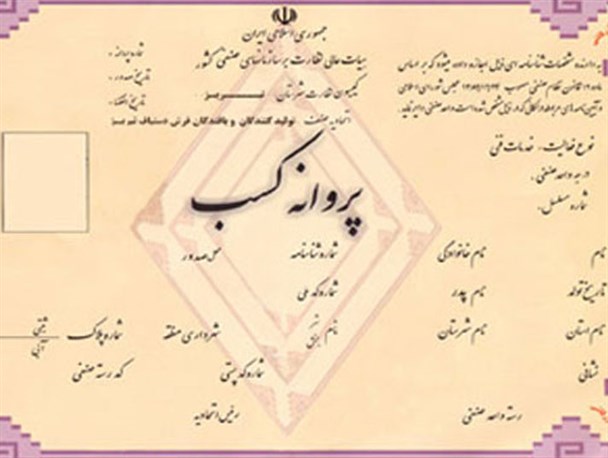 جمهوری اسلامی ایران
هیات عالی نظارت بر سازمانهای صنفی کشور
کمیسیون نظارت شهرستان تبریز
اتحادیه صنف تولید کنندگان و بافندگان فرش دستباف تبریز
شماره پروانه :
تاریخ صدور :
تاریخ انقضاء :
به دارنده مشخصات شناسنامه ای ذیل اجازه داده میشود که بر اساس
ماده قانون نظام صنفی مصوب مجلس شورای اسلامی
و آیین نامه های مربوطه در ذیل مشخص شده است واحد صنفی دایر نماید.
نوع فعالیت : خدمات فنی
درجه واحد صنفی :
شماره مسلسل :
پروانه کسب
نام نام خانوادگی شماره شناسنامه محل صدور
تاریخ تولد نام پدر شماره کد ملی
نام استان نام شهرستان نام شهر بخش شهرداری منطقه شماره پلاک ثبتی آبی
نشانی شماره کد پستی کد رسته صنفی
رسته واحد صنفی رئیس اتحادیه